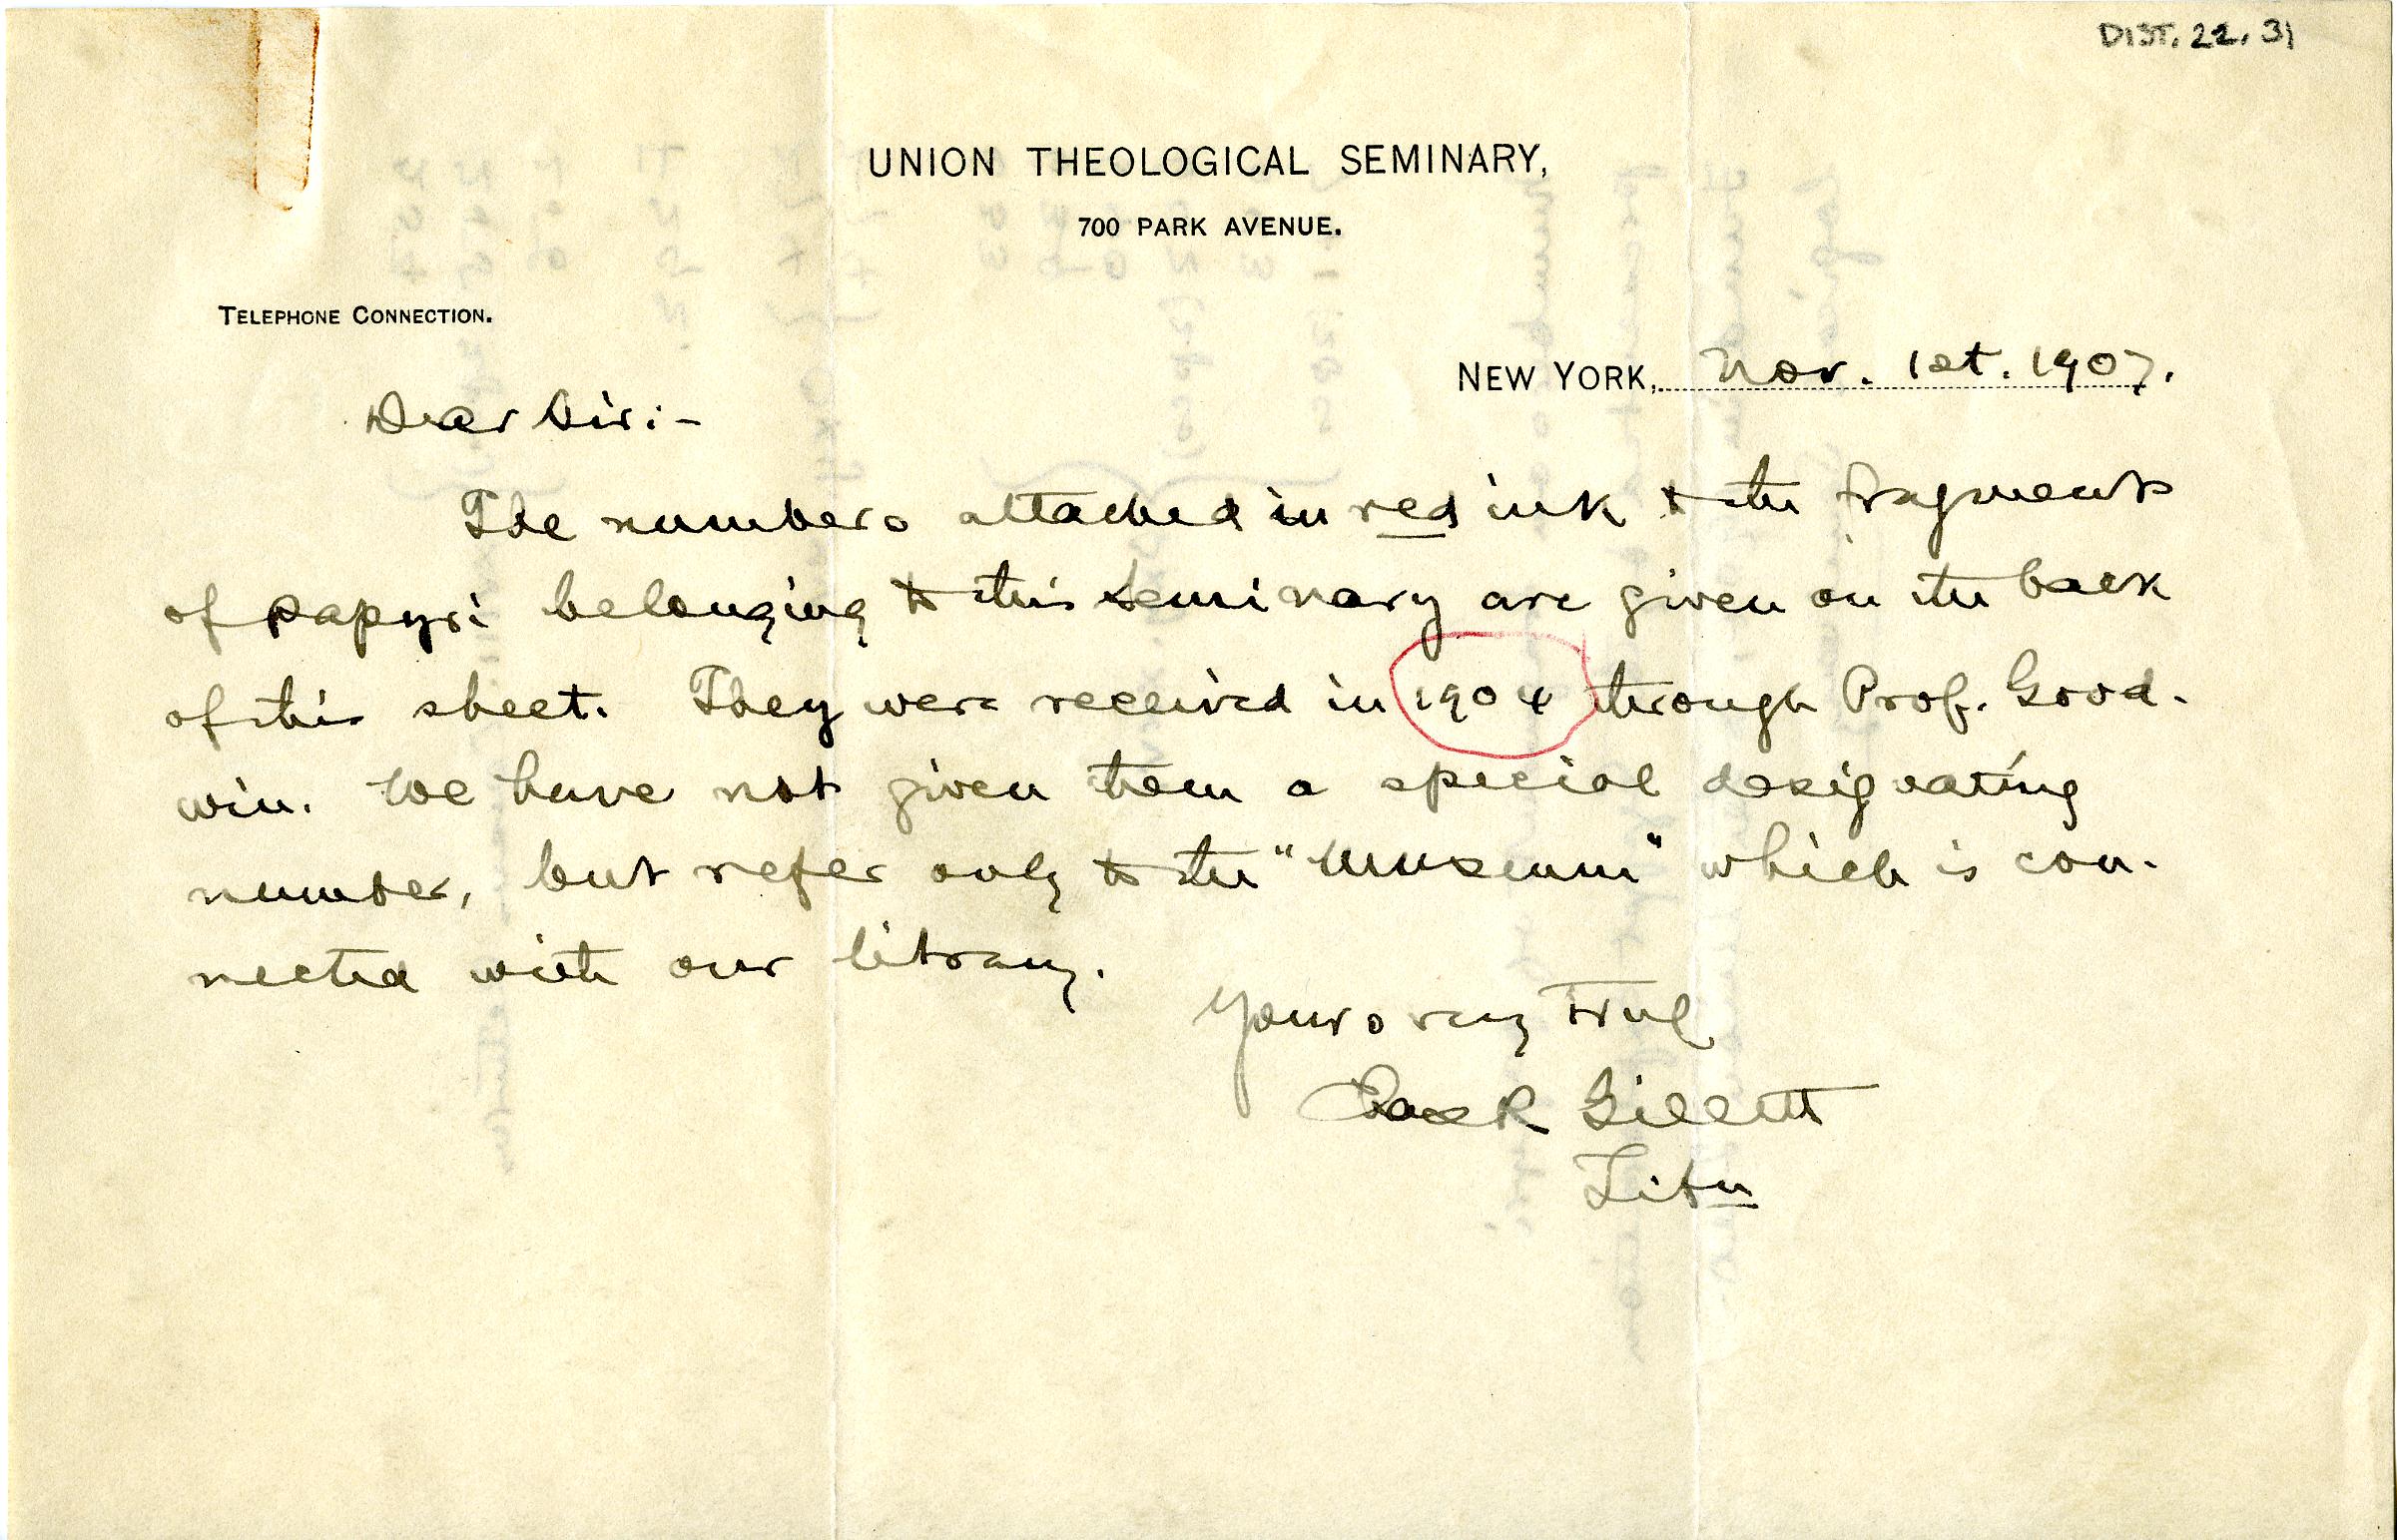 DIST. 22.31
UNION THEOLOGICAL SEMINARY,
700 PARK AVENUE.
TELEPHONE CONNECTION.
NEW YORK, Nov. 1st. 1907.
Dear Sir:-
The numbers attached in red ink to the fragments
of papyri belonging to this Seminary are given on the back
of this sheet. They were received in 1904 through Prof. Good-
win. We have not given them a special designating
number, but refer only to the "Museum" which is con-
nected with our library.
Yours very truly
Gillett
Libn